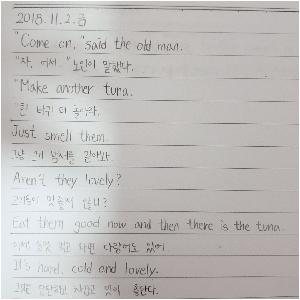 2018. 11. 2. 금
"Come on," said the old man.
"자, 어서." 노인이 말했다.
"Make another turn.
"한 바퀴 더 돌아라.
Just smell them.
그냥 그 냄새를 맡아봐.
Aren't they lovely?
그것들이 멋지지 않니?
Eat them good now and then there is the tuna.
먹고 나면 다랑어도 있어.
It's hard, cold and lovely.
단단하고 차갑고 맛이 좋단다.